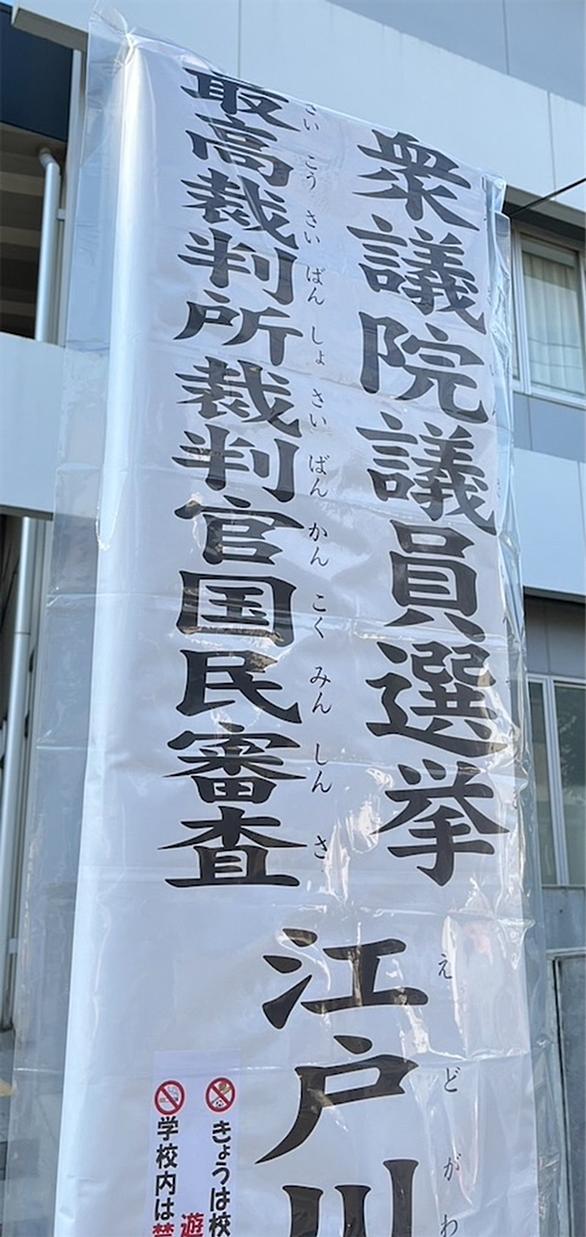 衆議院議員選挙
さいこうさいばんしょさいばんかんこくみんしんさ
最高裁判所裁判官国民審査
えどがわ
江戸川
きょうは校
遊
学校内は禁